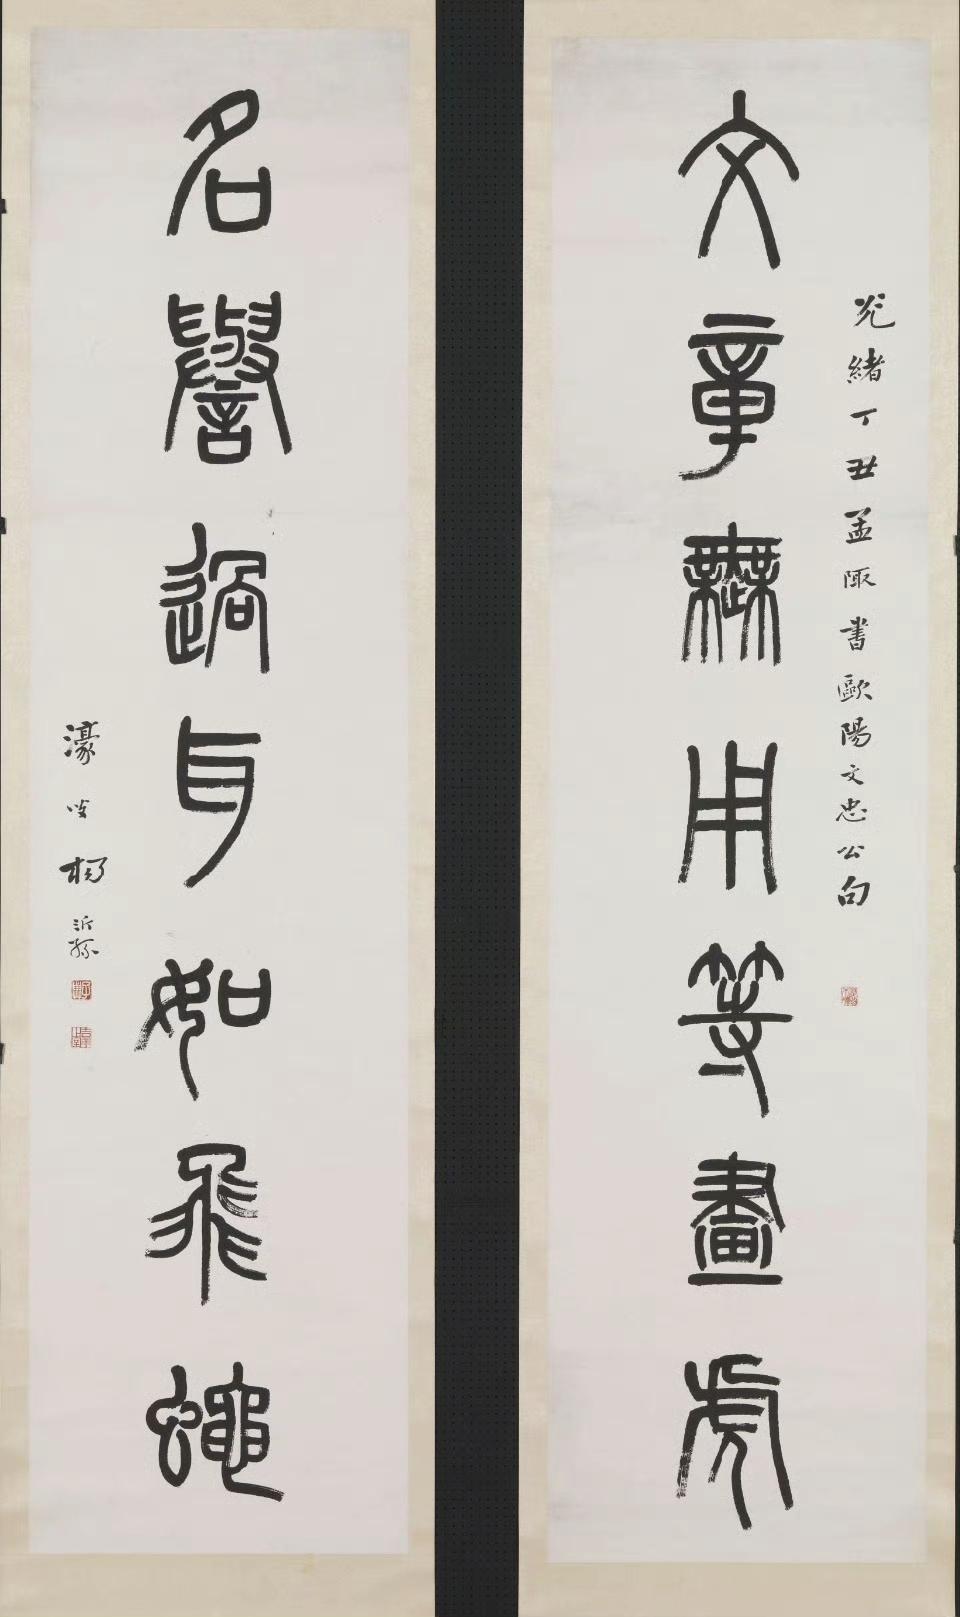 光緒丁丑孟陬書歐陽文忠公句
文章無用等畫虎
名譽過耳如飛蠅
濠叟楊沂孫